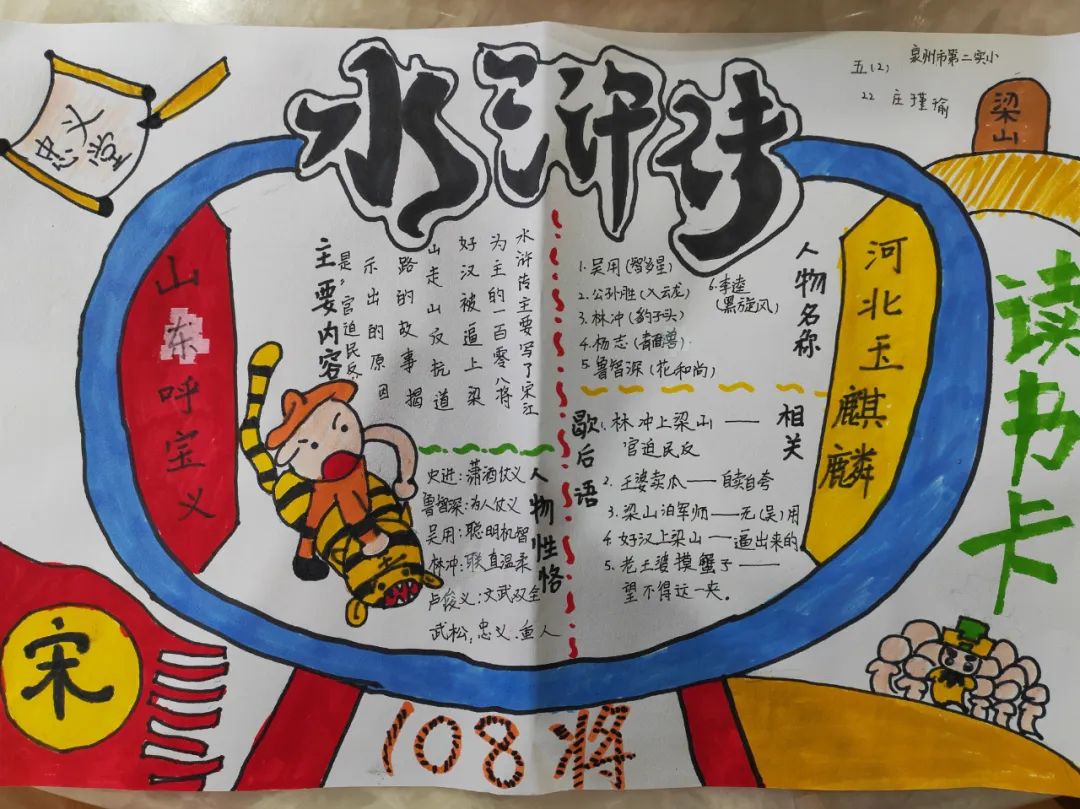 忠义堂
水浒传
泉州市第二实小
五(2)
22 庄瑾瑜
梁山
读书卡
山东呼宝义
河北玉麒麟
主要内容
水浒传主要写了宋江
为主的一百零八将
好汉被逼上梁
山走山反抗道
路的故事揭
示出的原因
是：官迫民反
人物名称
1.吴用(智多星)
2.公孙胜(入云龙)
3.林冲(豹子头)
4.杨志(青面兽)
5.鲁智深(花和尚)
6.李逵
(黑旋风)
人物性恪
史进:潇洒仗义
鲁智深:为人仗义
吴用:聪明机智
林冲:耿直温柔
卢俊义:文武双全
武松:忠义.鱼人
相关
歇后语
1.林冲上梁山——
官迫民反
2.王婆卖瓜——自卖自夸
3.梁山泊军师——无(吴)用
4好汉上梁山——逼出来的
5.老王婆摸蟹子——
望不得这一夹。
宋
108将